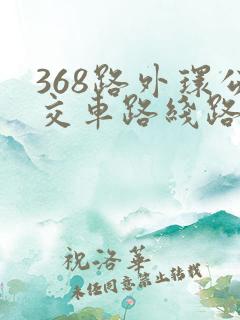 368路外环公
交车路线路
祝洛华
未经同意禁止转载